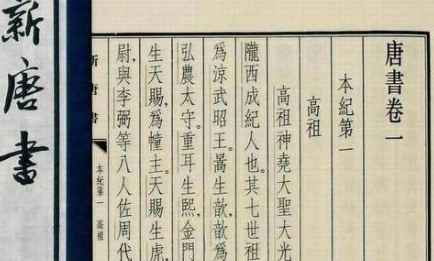 唐書卷一
本紀第一
高祖
高祖神堯大聖大光
隴西成紀人也。其七世祖
爲涼武昭王。暠生歆，歆爲
弘農太守。重耳生熙，金門
生天賜，爲幢主。天賜生虎，
尉，與李弼等八人佐周代
新唐書
本紀第一 高祖
新唐書